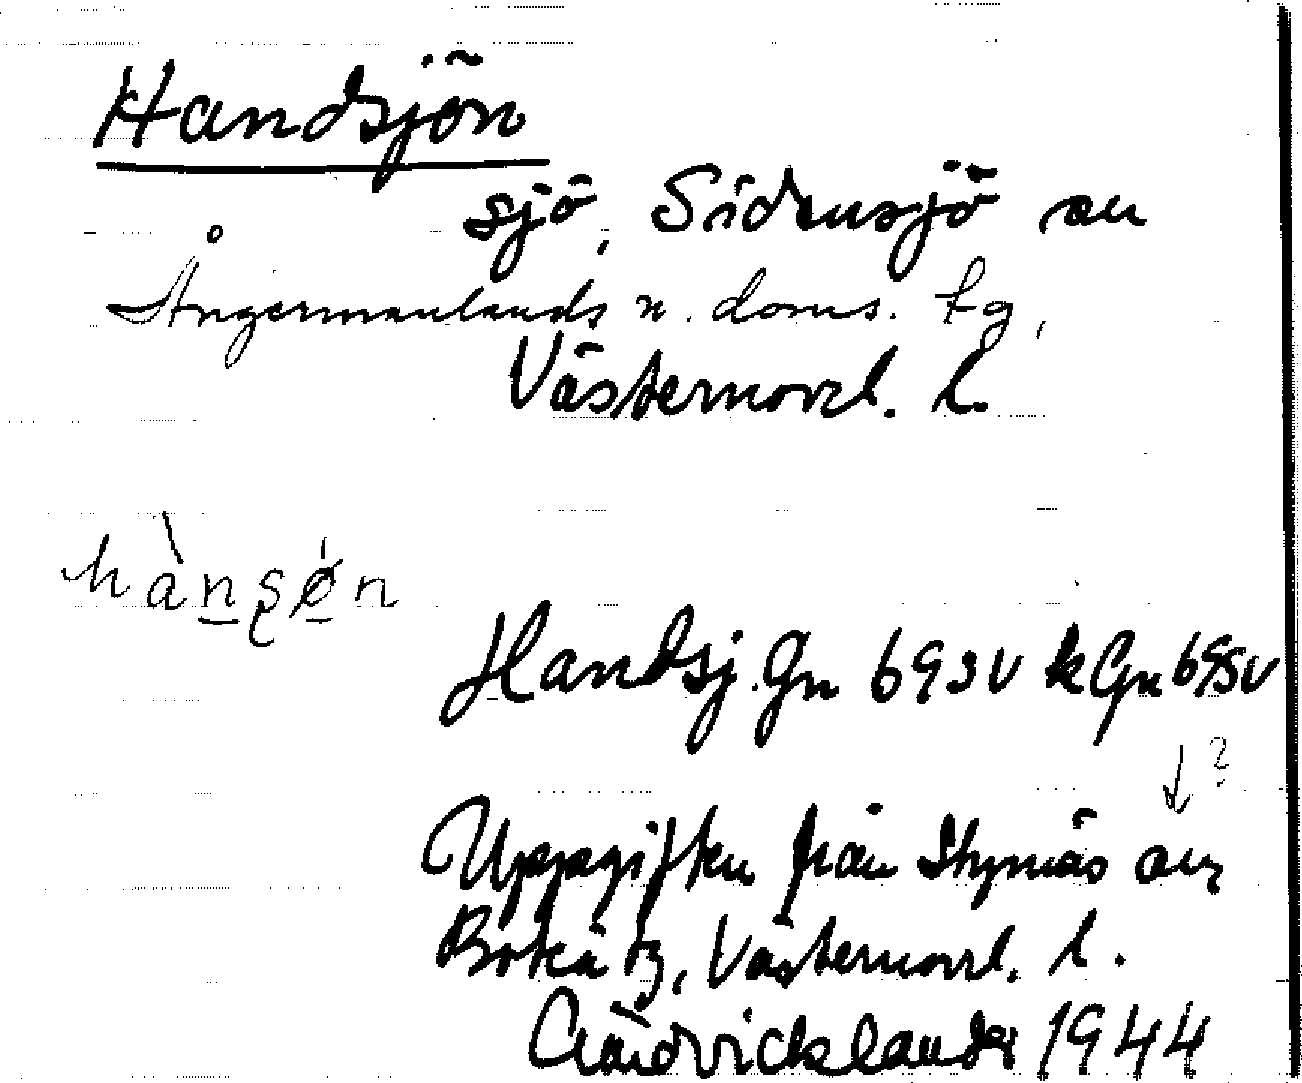 Handsjön
sjö, Sidensjö sn
Ångermanlands n. doms. tg,
Västernorrl. l.
hànsøn
Handsj. Gn 693V k Gn 693V
↓ ?
Uppgiften från Styrnäs sn,
Boteå tg, Västernorrl. l.
1944